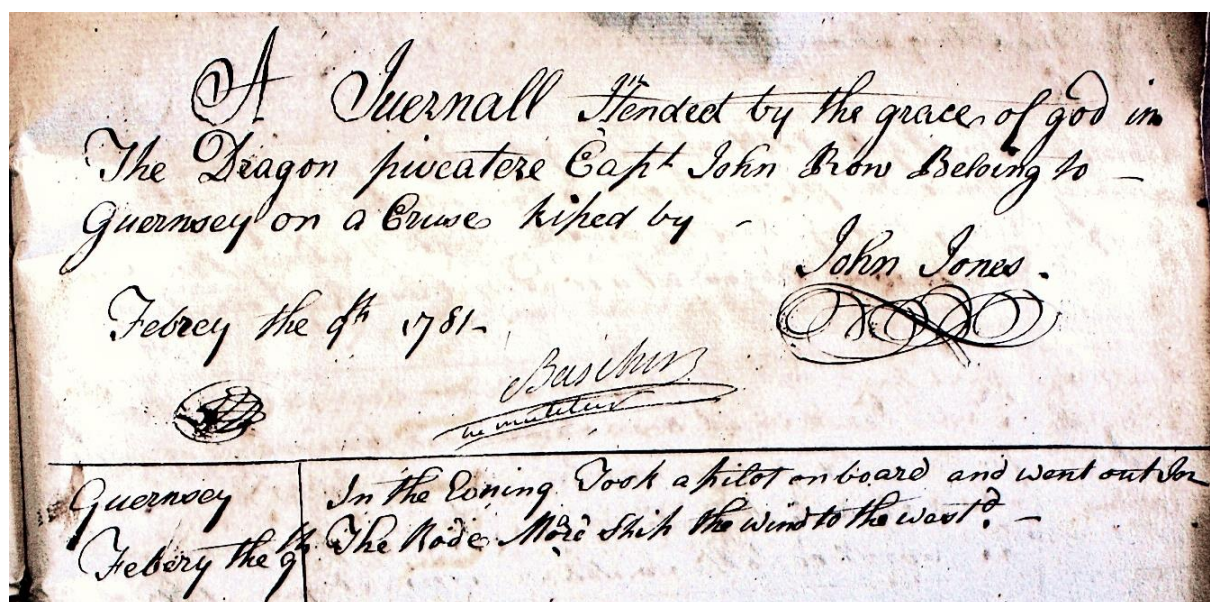 A Juernall Itended by the grace of god in
The Dragon pivcatere Capt John Row Belong to -
Guernsey on a Cruse kiped by -
John Jones.
Febrey the 9th 1781-
Guernsey
Febery the 9th
In the Evning Took a pilot on board and went out In
The Rode Mord Ship the wind to the westd. -